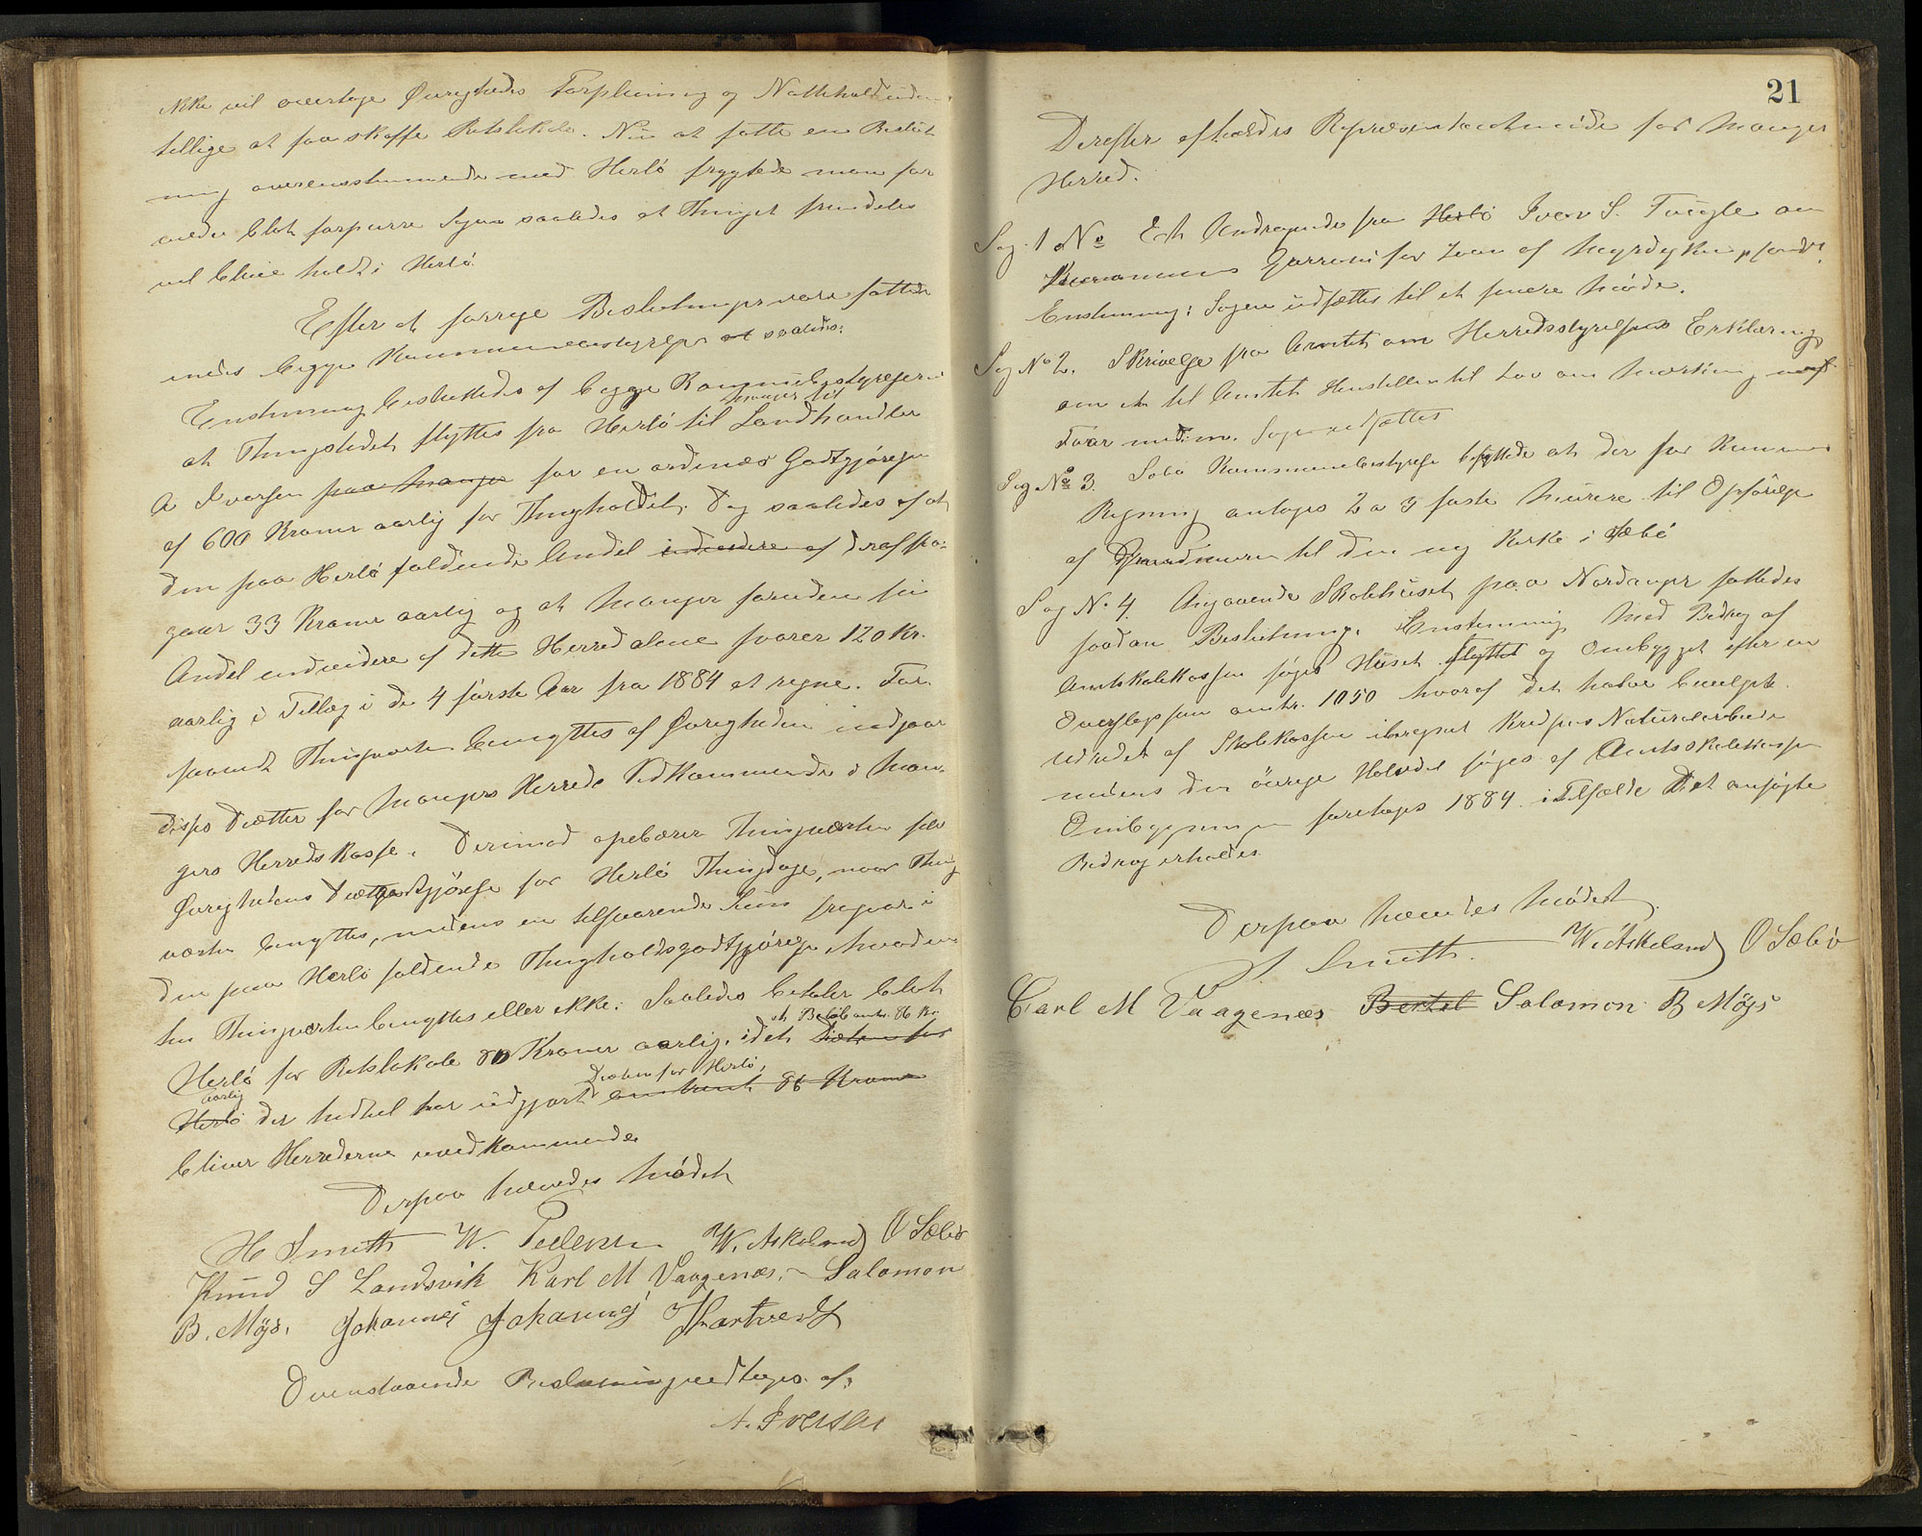 ikke vil overtage Øvrighedens Forpleining og Nattehold uden
tillige at faa skaffe Retslokale. Nu at fatte en Beslut
ning overensstemmende med Herlö frygtede man for
vilde blot forpurre Sagen saaledes at Thinget fremdeles
vil blive holdt i Herlö.
Efter at forrige Beslutninger vare fattede
enedes begge Kommunebestyrelser saaledes:
Enstemmig besluttedes af begge Kommunebestyrelserne
at Thingstedet flyttes fra Herlö til Landhandler
A Iversen paa Manger for en ordinær Godtgjörelse
af 600 Kroner aarlig for Thingholdet. Dog saaledes af at
den paa Herlö faldende Andel udredere af dref fra-
gaar 33 Kroner aarlig og at Manger foruden sin
Andel endvidere af dette Herred alene svarer 120 Kr.
aarlig i Tillæg i de 4 første Aar fra 1884 at regne. For-
saavidt Thingværten benyttes af Øvrigheden indgaar
disses Diætter for Mangers Herreds Vedkommende i Man-
gers Herredskasse. Derimod opebærer Thingværten selv
Øvrighedens Diætgodtgjörelse for Herlö Thingdage, naar Thing
værten benyttes, medens en tilsvarende Sum fragaar i
den paa Herlö faldende Thingholdsgodtgjörelse hvad en-
ten Thingværten benyttes eller ikke. Saaledes betaler blot
et Beløb omtr. 86 Kr.
Herlö for Retslokale 80 Kroner aarlig, idet Diæten for
aarlig Diæten for Herlö,
Herlö der hidtil har udgjort omtrent 86 Kroner
bliver Herrederne uvedkommende
Derpaa hævedes Mödet
H Smith W. Pedersen W. Askeland O Sæbö
Knud S Landsvik Karl M Vaagenæs. Salamon
B. Mÿs. Johannes Johannes Hartveit
Ovenstaaende Beslutning vedtages af:
A. Iversen
21
Derefter afholdtes Repræsentantmöde for Manger
Herred.
Sag 1 No Et Andragende fra Herlö Iver S. Fugle om
Kommunens Garranti for Laan af Myrdyrkningsfondet.
Enstemmig: Sagen udsættes til et senere Möde.
Sag No 2. Skrivelse fra Amtet om Herredsstyrelsens Erklæring
om et til Amtet Henstillen til Lov om Mærkning af
Faar med m. Sagen udsættes
Sag No 3. Sæbö Kommunebestyrelse besluttede at der for Kommunens
Regning antages 2 a 3 faste Murere til Opförelse
af Grundmuren til den ny Kirke i Sæbö
Sag N. 4. Angaaende Skolehuset paa Nordanger fattedes
saadan Beslutning. Enstemmig Med Bidrag af
Amtskolekassen söges Huset flyttet og Ombygget efter en
Overslagssum omtr. 1050 hvoraf det halve Beløb
udredet af Skolekassen iberegnet Kredsens Naturalarbeide
medens den övrige Halvdel söges af Amtsskolekassen
Ombygningen foretages 1884 i Tilfælde Det ansøgte
Bidrag erholdes.
Derpaa hævedes Mödet.
H Smith. W. Askeland O Sæbö
Carl M Vaagenæs Bertel Salamon B Mÿs